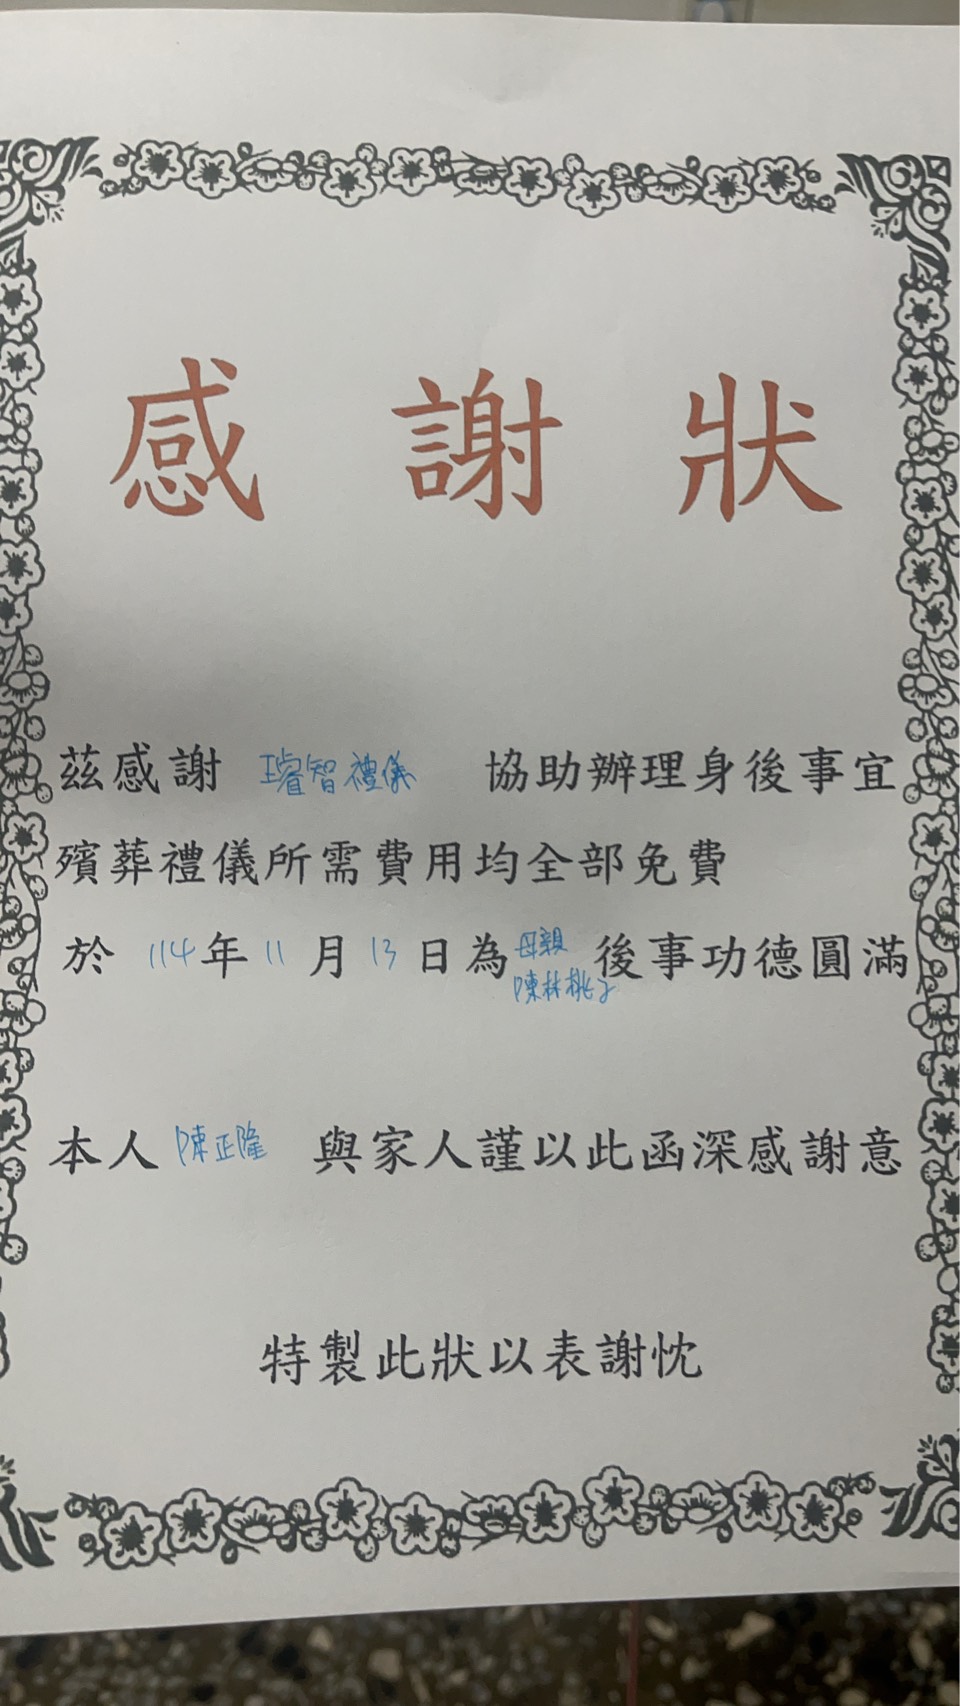 感謝狀
茲感謝 璿智禮儀 協助辦理身後事宜
殯葬禮儀所需費用均全部免費
於 114 年 11 月 13 日為 母親 陳林桃子 後事功德圓滿
本人 陳正隆 與家人謹以此函深感謝意
特製此狀以表謝忱